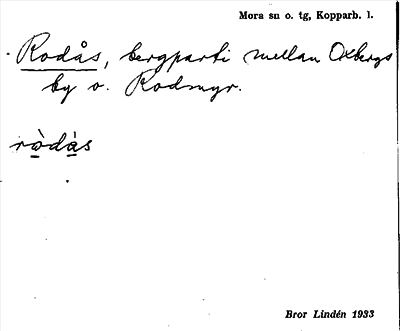 Mora sn o. tg, Kopparb. l.
Rodås, bergparti mellan Oxbergs
by o. Rodmyr.
ròdàs
Bror Lindén 1933